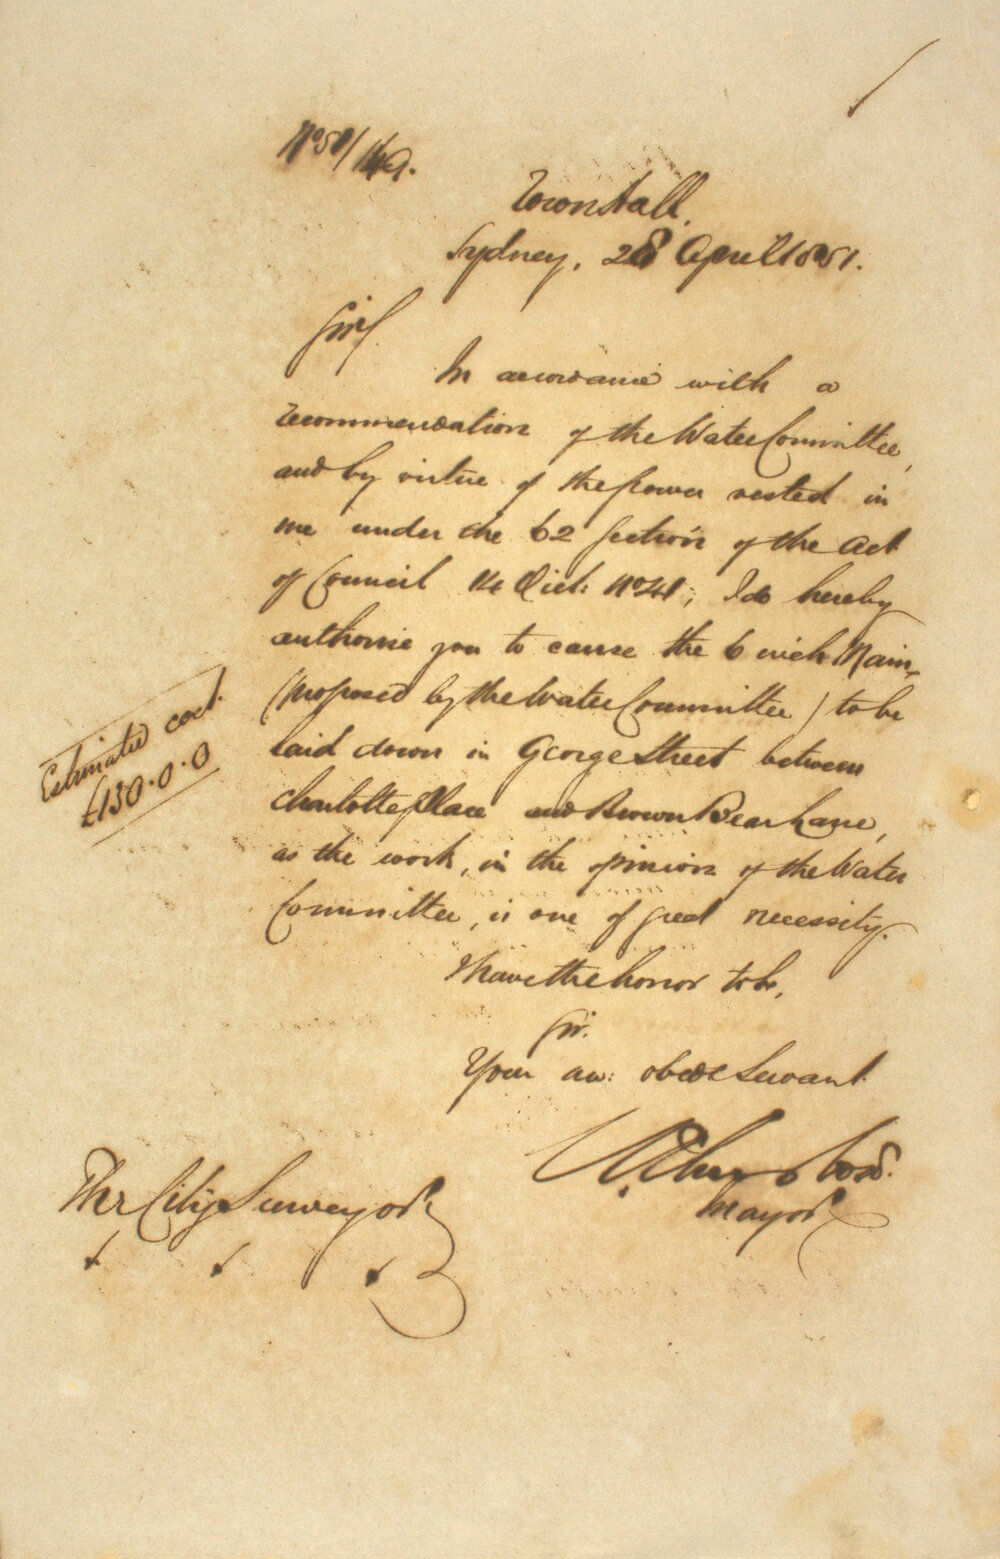 No 51/149.
Town Hall.
Sydney, 28 April 1851.
Sir,
In accordance with a
recommendation of the Water Committee,
and by virtue of the power vested in
me under the 62 Section of the Act
of Council 14 Vict: No 41, I do hereby
authorise you to cause the 6 inch Main,
(proposed by the Water Committee) to be
laid down in George Street between
Charlotte Place and Brown Bear Lane,
as the work, in the opinion of the Water
Committee, is one of great necessity.
I have the honor to be,
Sir.
Your obedt Servant
Mayor
The City Surveyor
Estimated cost.
£130.0.0